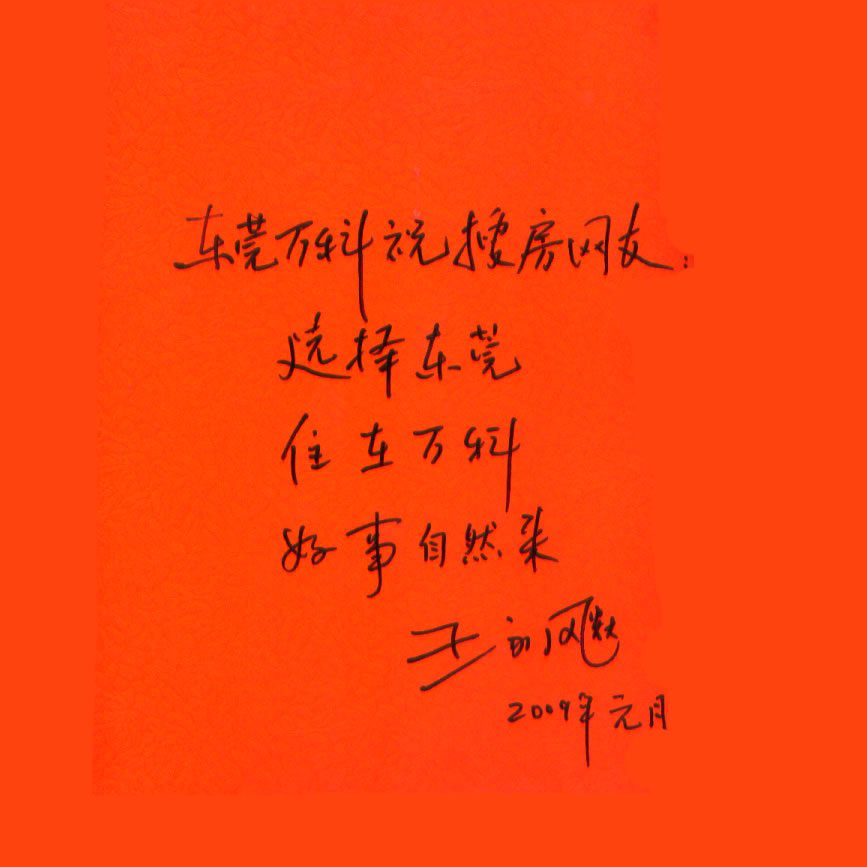 东莞万科祝搜房网友:
选择东莞
住在万科
好事自然来
2009年元月